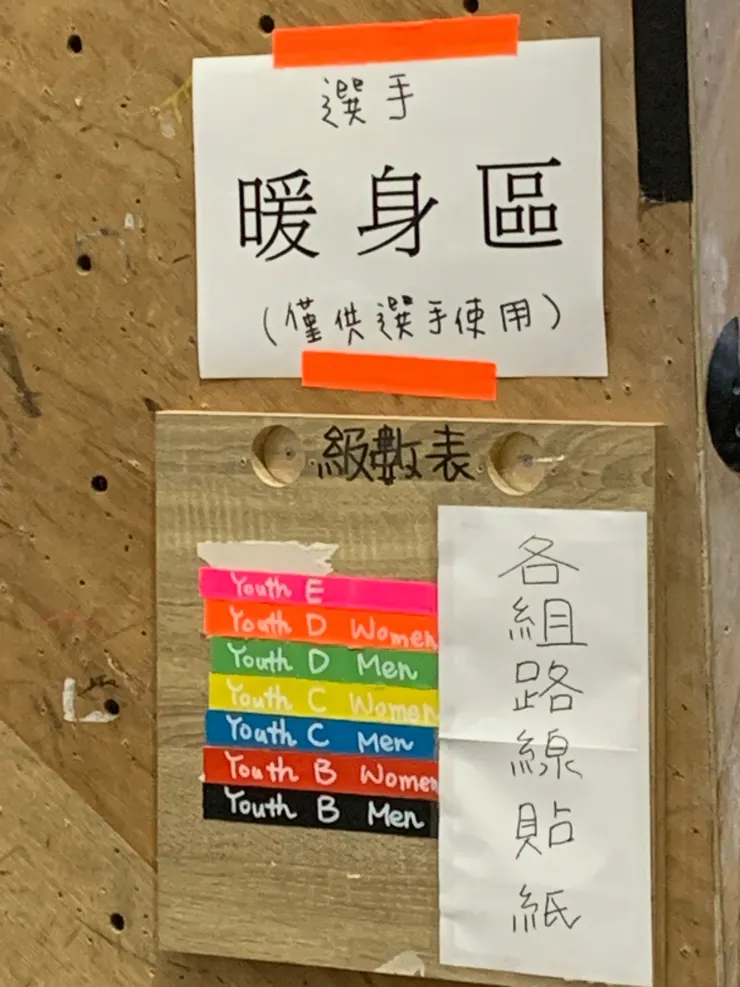 選手
暖身區
(僅供選手使用)
級數表
Youth E
Youth D Women
Youth D Men
Youth C Women
Youth C Men
Youth B Women
Youth B Men
各組路線貼紙